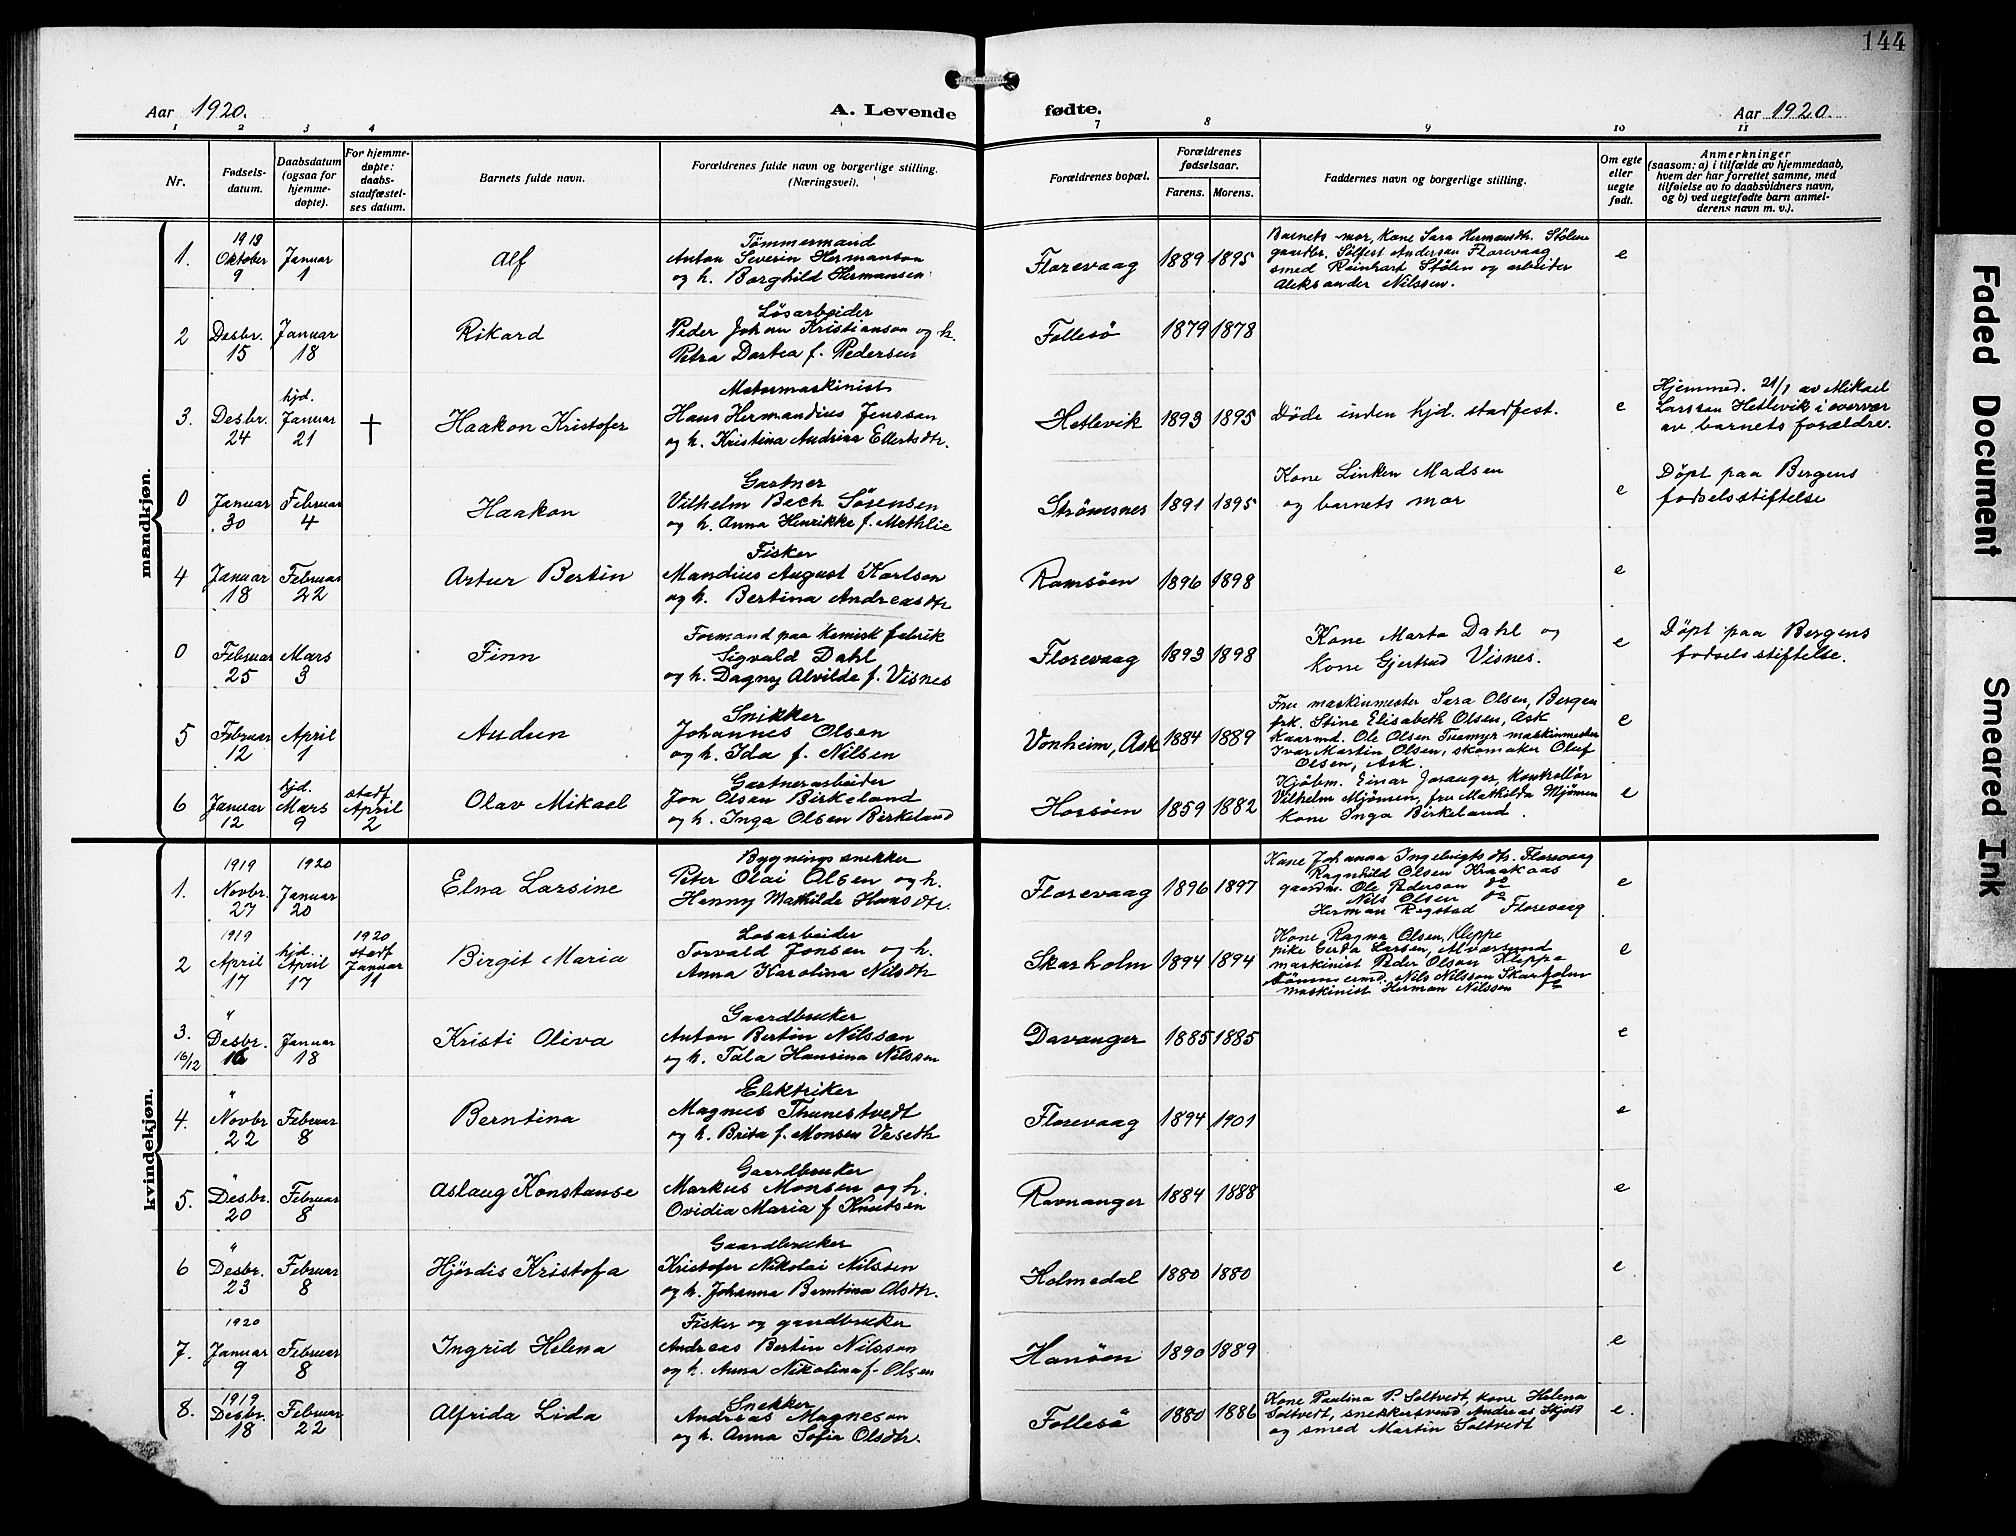 144
Aar 1920.
A. Levende fødte.
Aar 1920.
1 2 3 4 7 8 9 10 11
Nr.
Fødsels-
datum.
Daabsdatum
(ogsaa for
hjemme-
døpte).
For hjemme-
døpte:
daabs-
stadfæstel-
ses datum.
Barnets fulde navn.
Forældrenes fulde navn og borgerlige stilling.
(Næringsvei).
Forældrenes bopæl.
Forældrenes
fødselsaar.
Farens. Morens.
Faddernes navn og borgerlige stilling.
Om egte
eller
uegte
født.
Anmerkninger
(saasom: a) i tilfælde av hjemmedaab,
hvem der har forrettet samme, med
tilføielse av to daabsvidners navn,
og b) ved uegtefødte barn anmel-
derens navn m. v.).
mandkjøn.
1.
1919
Oktober
9
Januar
1
Alf
Tømmermand
Anton Severin Hermanson
og h. Borghild Hermansen
Florevaag
1889 1895
Barnets mor, kone Sara Hermansdtr. Stølen
gaardbr. Sølfest Andersen Florevaag
smed Reinhart Stølen og arbeider
Aleksander Nilssen.
e
2
Desbr.
15
Januar
18
Rikard
Løsarbeider
Peder Johan Kristianson og h.
Petra Dortea f. Pedersen
Follesø
1879 1878
3.
Desbr.
24
hjd.
Januar
21
†
Haakon Kristofer
Motormaskinist
Hans Hermandius Jenssen
og h. Kristina Andrina Ellertsdtr.
Hetlevik
1893 1895
Døde inden hjd. stadfest.
e
Hjemmed. 21/1 av Mikael
Larsson Hetlevik i overvær
av barnets forældre.
0
Januar
30
Februar
4
Haakon
Gartner
Vilhelm Bech Sørensen
og h. Anna Henrikke f. Methlie
Strømsnes
1891 1895
Kone Linken Madsen
og barnets mor
e
Døpt paa Bergens
fødselsstiftelse
4
Januar
18
Februar
22
Artur Bertin
Fisker
Mandius August Karlson
og h. Bertina Andreasdtr
Ramsøen
1896 1898
e
0
Februar
25
Mars
3
Finn
Formand paa kemisk fabrik
Sigvald Dahl
og h. Dagny Alvilde f. Visnes
Florevaag
1893 1898
Kone Marta Dahl og
kone Gjertrud Visnes.
e
Døpt paa Bergens
fødselsstiftelse.
5
Februar
12
April
1
Audun
Snikker
Johannes Olsen
og h. Ida f. Nilsen
Vonheim, Ask
1884 1889
Fru maskinmester Sara Olsen, Bergen
frk. Stine Elisabeth Olsen, Ask
kaarmd. Ole Olsen maskinmester
Ivar Martin Olsen, skomaker Oluf
Olsen, Ask.
e
6
Januar
12
hjd.
Mars
9
stadf
April
2
Olav Mikael
Gartnerarbeider
Jon Olsen Birkeland
og h. Inga Olsen Birkeland
Horsøen
1859 1882
Kjøbm. Einar Joranger, kontrollør
Vilhelm Mjønsen, fru Mathilda Mjønsen
kone Inga Birkeland.
e
kvindekjøn.
1.
1919
Novbr.
27
1920
Januar
20
Elna Larsine
Bygnings snekker
Peter Olai Olsen og h.
Henny Mathilde Hansdtr.
Florevaag
1896 1897
Kone Johanna Ingebrigtsdtr. Florevaag
Ragnhild Olsen Kraakaas
gaardm. Ole Pederson do
Nils Olsen do
Herman Regstad Florevaag
e
2
1919
April
17
hjd.
April
17
1920
stadf
Januar
11
Birgit Maria
Losarbeider
Torvald Jonsen og h.
Anna Karolina Nilsdtr
Skarholm
1894 1894
Kone Ragna Olsen, Kleppe
pike Gerda Larsen, Alværsund
maskinist Peder Olson Kleppe
Tømmermd. Nils Nilsson Skarholm
maskinist Herman Nilssen do
e
3.
16/12
"
Desbr.
16
Januar
18
Kristi Oliva
Gaardbruker
Anton Bertin Nilssen
og h. Tala Hansina Nilssen
Davanger
1885 1885
e
4.
"
Novbr
22
Februar
8
Berntina
Elektriker
Magnus Thunestvedt
og h. Brita f. Monsen
Florevaag
1894 1901
e
5.
"
Desbr.
20
Februar
8
Aslaug Konstanse
Gaardbruker
Markus Monsen og h.
Ovidia Maria f Knutsen
Ravnanger
1884 1888
e
6
"
Desbr.
23
Februar
8
Hjørdis Kristofa
Gaardbruker
Kristofer Nikolai Nilssen
og h. Johanna Berntina Olsdtr.
Holmedal
1880 1880
e.
7.
1920
Januar
9
Februar
8
Ingrid Helena
Fisker og gaardbruker
Andreas Bertin Nilsson
og h. Anna Nikolina f. Olsen
Hanøen
1890 1889
e
8.
1919
Desbr.
18
Februar
22
Alfrida Lida
Snekker
Andreas Magneson
og h. Anna Sofia Olsdtr.
Follesø
1880 1886
Kone Paulina P. Soltvedt, kone Helena
Soltvedt, snekkersvend Andreas Skjold
og smed Martin Soltvedt
e.
Faded Document
Smeared Ink